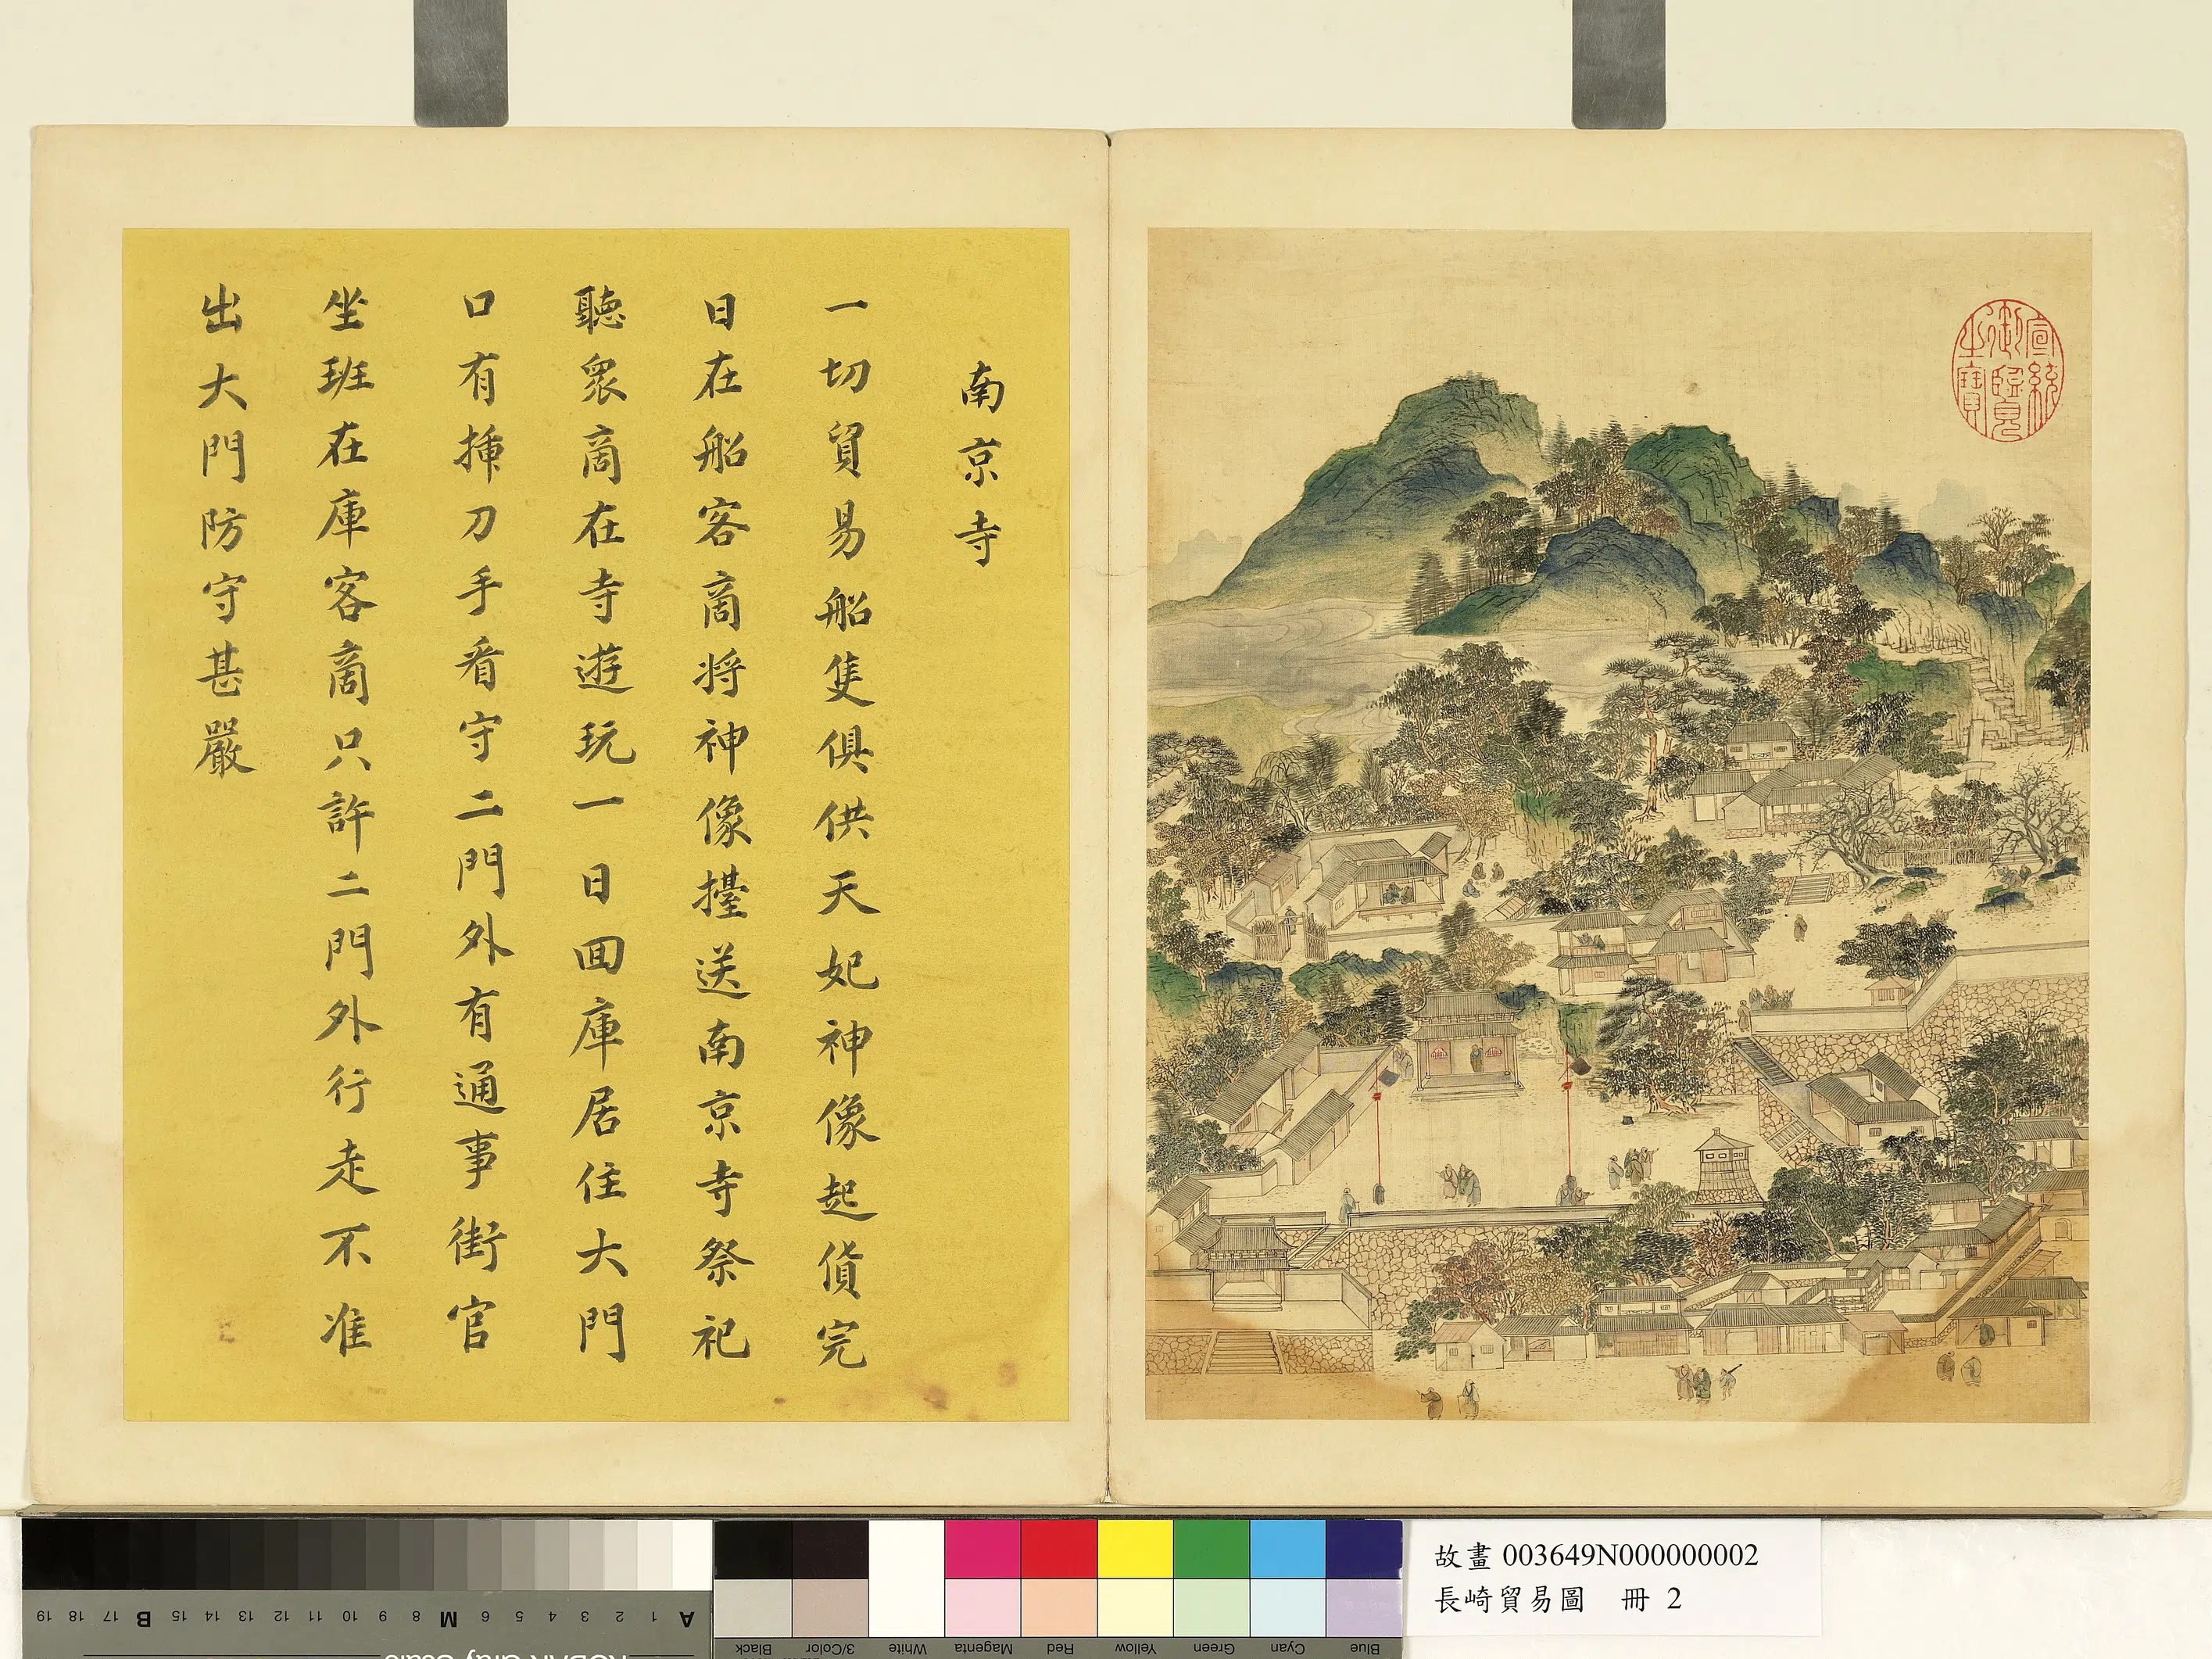 南京寺
一切貿易船隻俱供天妃神像起貨完
日在船客商将神像擡送南京寺祭祀
聽衆商在寺遊玩一日囬庫居住大門
口有挿刀手看守二門外有通事街官
坐班在庫客商只許二門外行走不准
出大門防守甚嚴
宣統御覽之寶
故畫 003649N000000002
長崎貿易圖 冊 2
A 1 2 3 4 5 6 M 8 9 10 11 12 13 14 15 B 17 18 19
Blue Cyan Green Yellow Red Magenta White 3/Color Black